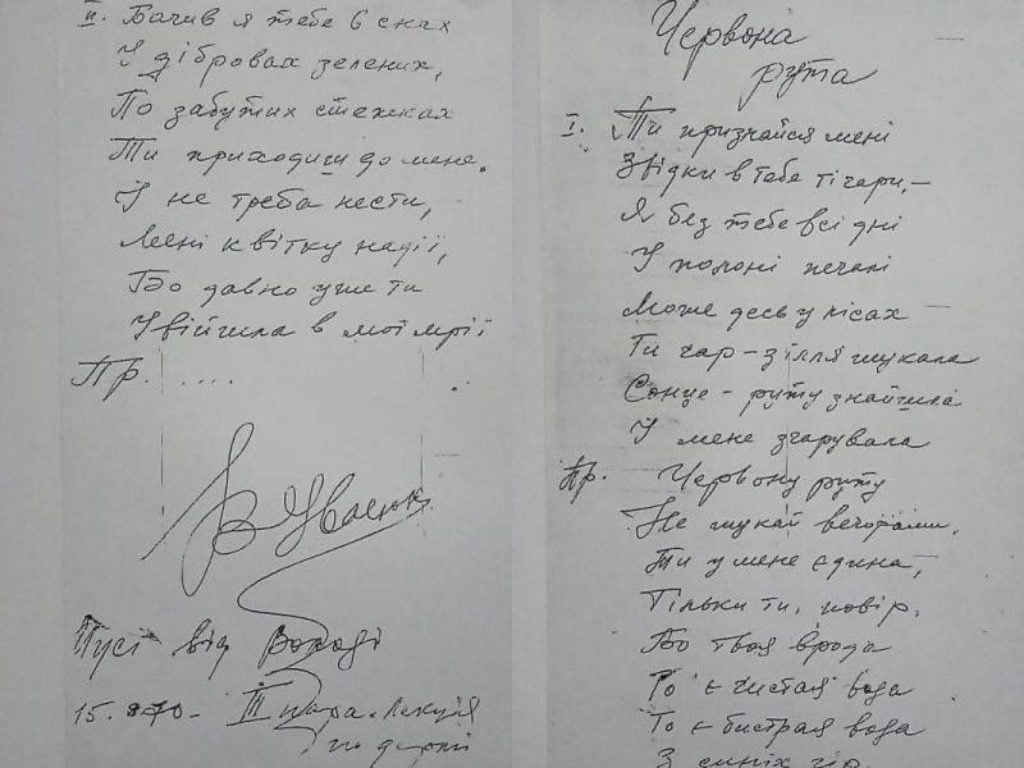 II. Бачив я тебе в снах
У дібровах зелених,
По забутих стежках
Ти приходиш до мене.
І не треба нести,
Мені квітку надії,
Бо давно уже ти
Увійшла в мої мрії
Пр. ....
В Івасюк
Пусі від Володі
III пара. Лекція
по
Червона
рута
I. Ти признайся мені
Звідки в тебе ті чари,–
Я без тебе всі дні
У полоні печалі
Може десь у лісах
Ти чар-зілля шукала
Сонце-руту знайшла
І мене зчарувала
Пр. Червону руту
Не шукай вечорами,
Ти у мене єдина,
Тільки ти, повір.
Бо твоя врода
То є чистая вода
То є бистрая вода
З синіх гір.